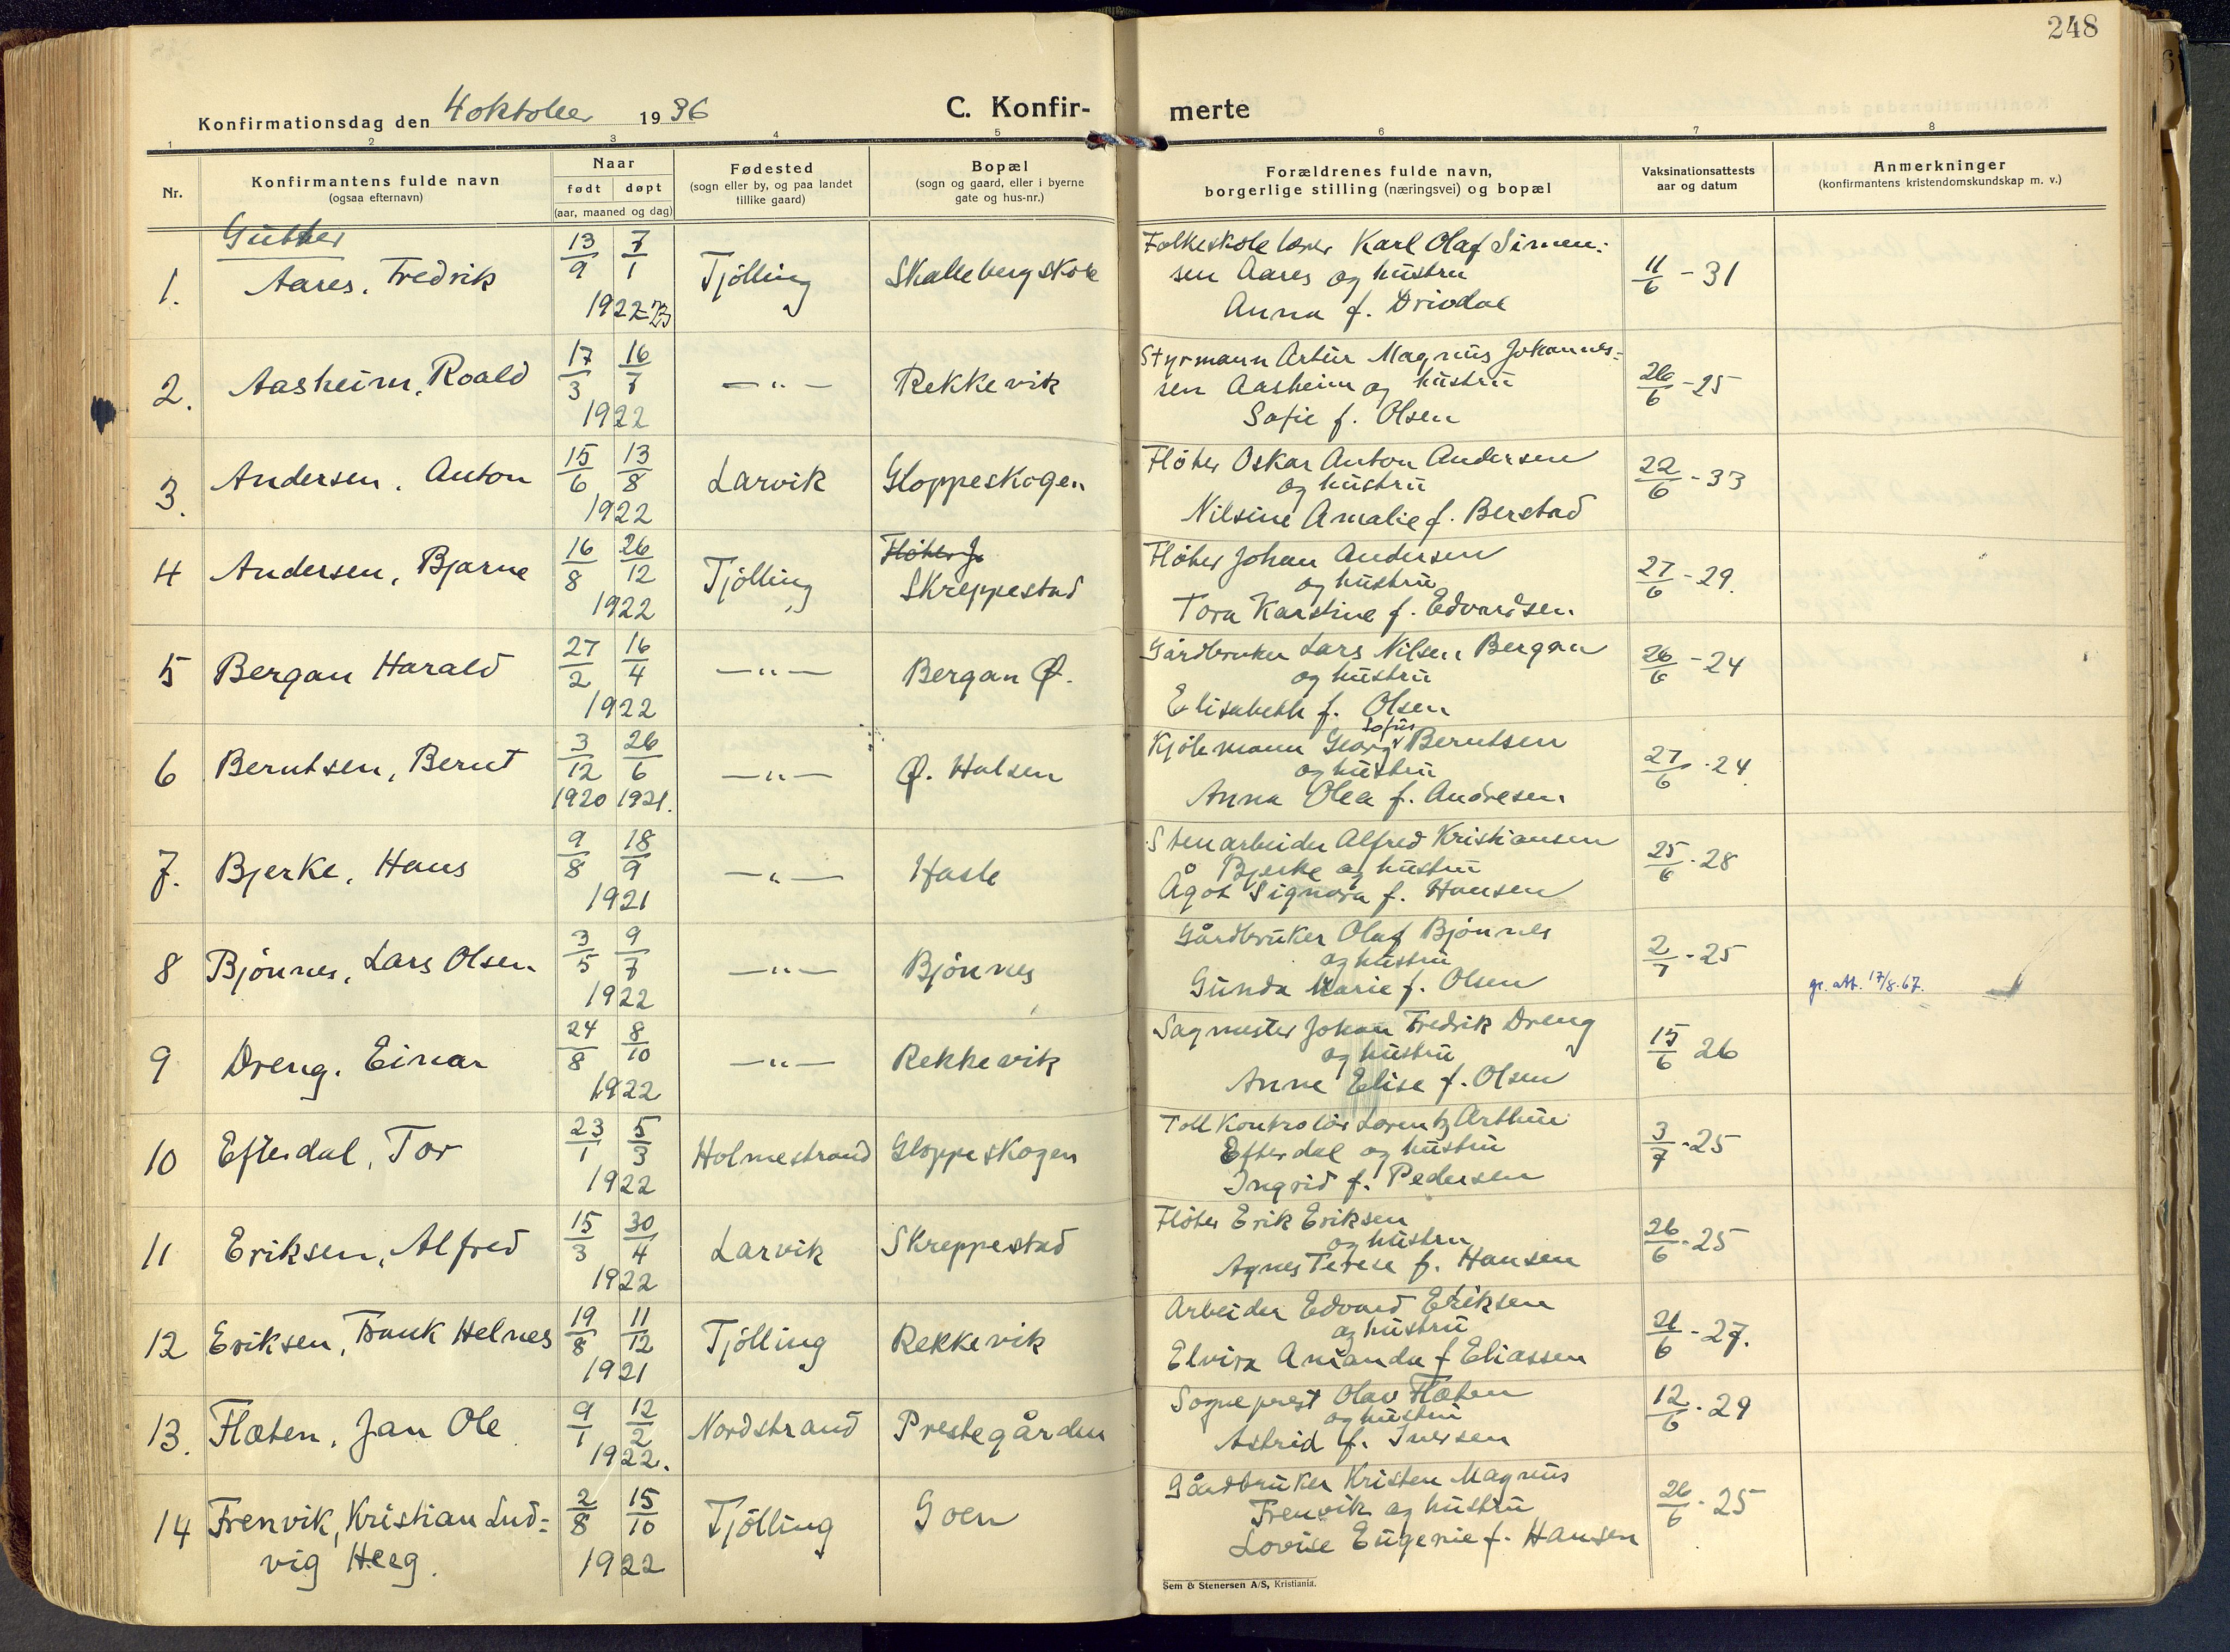 248
Konfirmationsdag den 4 oktober 1936
C. Konfir- merte
1 2 3 4 5 6 7 8
Nr.
Konfirmantens fulde navn
(ogsaa efternavn)
Naar
født døpt
(aar, maaned og dag)
Fødested
(sogn eller by, og paa landet
tillike gaard)
Bopæl
(sogn og gaard, eller i byerne
gate og hus-nr.)
Forældrenes fulde navn,
borgerlige stilling (næringsvei) og bopæl
Vaksinationsattests
aar og datum
Anmerkninger
(konfirmantens kristendomskundskap m. v.)
Gutter
1. Aares, Fredrik 13/9 7/1 1922-23 Tjölling Skalleberg skole
Folkeskolelærer Karl Olaf Simen-
sen Aares og hustru
Anna f. Drivdal
11/6 - 31
2. Aasheim, Roald 17/3 16/7 1922 — " — Rekkevik
Styrmann Artur Magnus Johannes-
sen Aasheim og hustru
Sofie f. Olsen
26/6 - 25
3. Andersen, Anton 15/6 13/8 1922 Larvik Gloppeskogen
Flöter Oskar Anton Andersen
og hustru
Nilsine Amalie f. Berstad
22/6 - 33
4 Andersen, Bjarne 16/8 26/12 1922 Tjölling Flöter J. Skreppestad
Flöter Johan Andersen
og hustru
Tora Karstine f. Edvardsen
27/6 - 29.
5 Bergan Harald 27/2 16/4 1922 — " — Bergan Ø.
Gårdbruker Lars Nilsen Bergan
og hustru
Elisabeth f. Olsen
26/6 - 24
6 Berntsen, Bernt 3/12 1920 26/6 1921. — " — Ø. Halsen
Kjölemann Georg Sofus Berntsen
og hustru
Anna Olea f. Andresen
27/6 - 24.
7. Bjerke, Hans 9/8 18/9 1921 — " — Hasle
Stenarbeider Alfred Kristiansen
Bjerke og hustru
Ågot Signora f. Hansen
25/6 - 28
8 Bjönnes, Lars Olsen 3/5 9/7 1922 — " — Bjönnes
Gårdbruker Olaf Bjönnes
og hustru
Gunda Marie f. Olsen
2/7 - 25
gr. att. 17/8-67.
9 Dreng, Einar 24/8 8/10 1922 — " — Rekkevik
Sagmester Johan Fredrik Dreng
og hustru
Anne Elise f. Olsen
15/6 26
10 Efterdal, Tor 23/1 5/3 1922 Holmestrand Gloppeskogen
Tollkontrolör Lorentz Arthur
Efterdal og hustru
Ingrid f. Pedersen
3/7 - 25
11 Eriksen, Alfred 15/3 30/4 1922 Larvik Skreppestad
Flöter Erik Eriksen
og hustru
Agnes Terese f. Hansen
26/6 - 25
12 Eriksen, Frank Helnes 19/8 11/12 1921 Tjölling Rekkevik
Arbeider Edvard Eriksen
og hustru
Elvira Amanda f Eliassen
21/6 - 27.
13. Flæten, Jan Ole 9/1 12/2 1922. Nordstrand Prestegården
Sogneprest Olav Flæten
og hustru
Astrid f. Iversen
12/6 - 29
14 Frenvik, Kristian Lud-
vig Heeg. 2/8 15/10 1922 Tjölling Goen
Gårdbruker Kristen Magnus
Frenvik og hustru
Lovise Eugenie f. Hansen
26/6 - 25
Sem & Stenersen A/S, Kristiania.